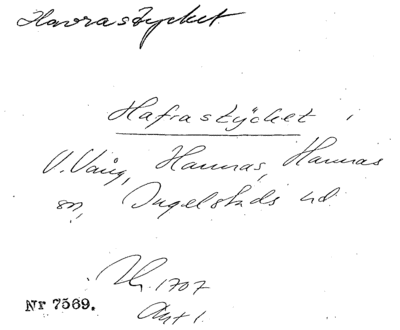 Havrastycket
Hafrastÿcket i
V. Vång, Hannas, Hannas
sn, Ingelstads hd
1707
Nr 7569.